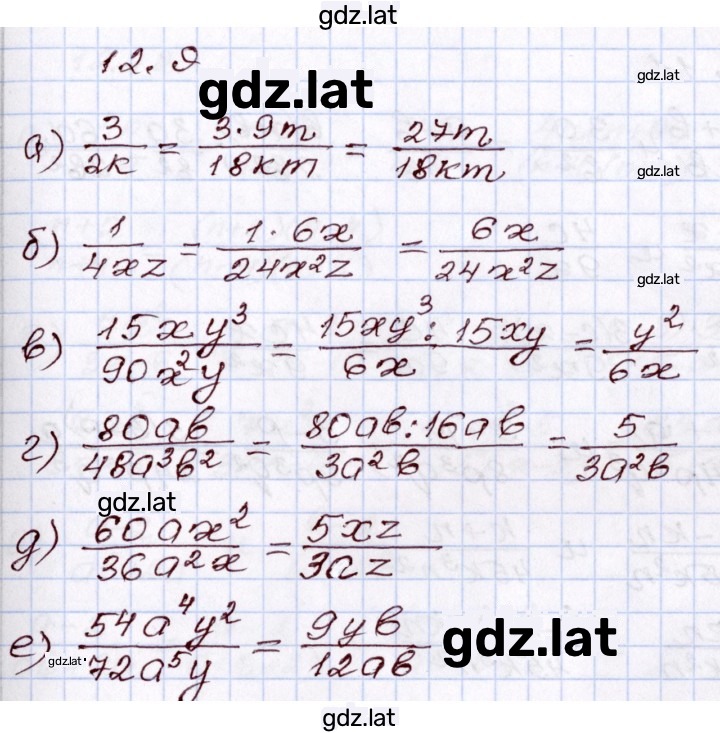 gdz.lat
12.9
gdz.lat
gdz.lat
а) 3/2k = 3·9m/18km = 27m/18km
gdz.lat
б) 1/4xz = 1·6x/24x²z = 6x/24x²z
gdz.lat
в) 15xy³/90x²y = 15xy³:15xy/6x = y²/6x
г) 80ab/48a³b² = 80ab:16ab/3a²b = 5/3a²b
gdz.lat
д) 60ax²/36a²x = 5xz/3az
е) 54a⁴y²/72a⁵y = 9yb/12ab
gdz.lat
gdz.lat
gdz.lat